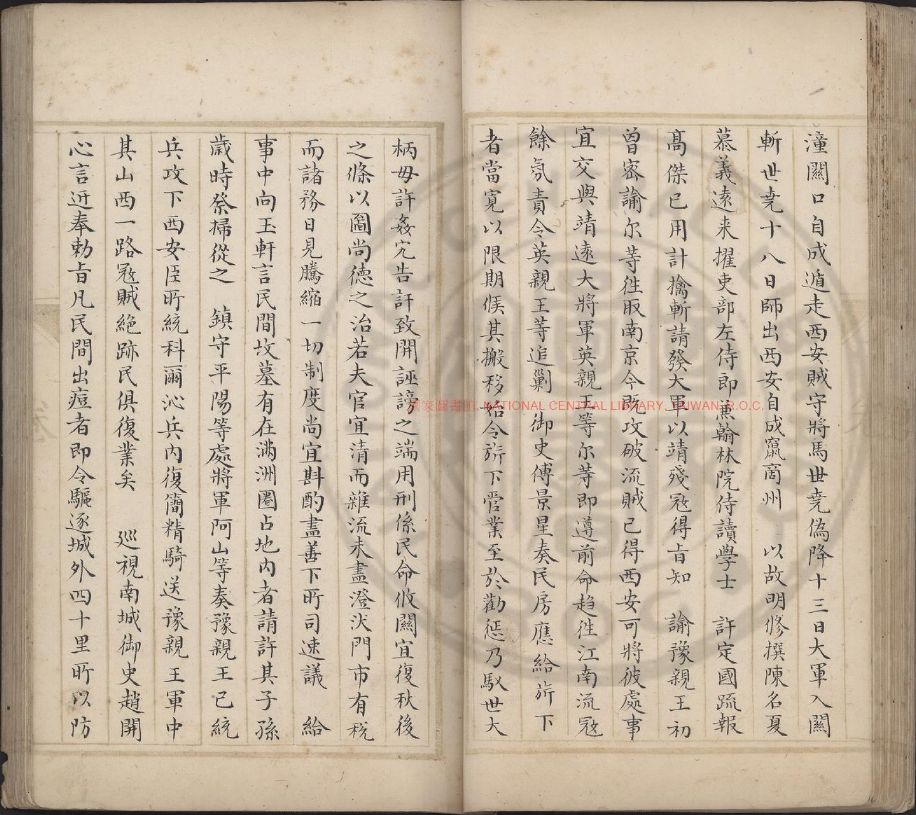 潼關口自成遁走西安賊守將馬世堯偽降十三日大軍入關
斬世堯十八日師出西安自成竄商州　以故明修撰陳名夏
慕義遠来擢吏部左侍郎兼翰林院侍讀學士　許定國疏報
高傑已用計擒斬請發大軍以靖殘冦得㫖知　諭豫親王初
曾密諭尔等徃取南京今既攻破流賊已得西安可將彼處事
宜交與靖遠大將軍英親王等尔等即遵前命趋徃江南流冦
餘氛責令英親王等追剿　御史傅景星奏民房應給旂下
者當寛以限期候其搬移始令旂下営業至於勸懲乃馭世大
柄毋許姦宄告訐致開誣謗之端用刑係民命攸關宜復秋後
之條以圖尚德之治若夫官宜清而雜流未盡澄汰門市有稅
而諸務日見騰縮一切制度尚宜斟酌盡善下所司速議　給
事中向玉軒言民間坟墓有在滿洲圈占地內者請許其子孫
歲時祭掃從之　鎮守平陽等處將軍阿山等奏豫親王已統
兵攻下西安臣所統科爾沁兵內復簡精騎送豫親王軍中
其山西一路冦賊絕跡民俱復業矣　廵視南城御史趙開
心言近奉勅㫖凡民間出痘者即令驅逐城外四十里所以防
國家圖書館 NATIONAL CENTRAL LIBRARY, TAIWAN, R.O.C.